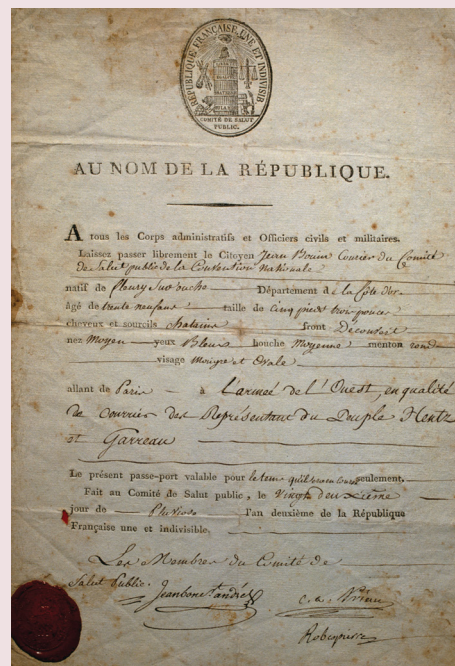 RÉPUBLIQUE FRANÇAISE UNE ET INDIVISIB
COMITÉ DE SALUT
PUBLIC.
AU NOM DE LA RÉPUBLIQUE.
A tous les Corps administratifs et Officiers civils et militaires.
Laissez passer librement le Citoyen Jean Courier du Comité
de Salut public de la Convention Nationale
natif de Fleury Sur ouche Département de la Côte d'or
âgé de trente neuf ans taille de Cinq pieds trois pouces
cheveux et sourcils chatains front Découvert
nez Moyen yeux Bleus bouche Moyenne menton rond
visage Maigre et Ovale
allant de Paris à L'armée de L'Ouest, en qualité
de courrier des Représentans du Peuple Hentz
et Garreau
Le présent passe-port valable pour seulement.
Fait au Comité de Salut public, le Vingt deuxieme
jour de Pluviose l'an deuxième de la République
Française une et indivisible.
Les Membres du Comité de
Salut Public. Jeanbon St andré
C. a. Prieur
Robespierre